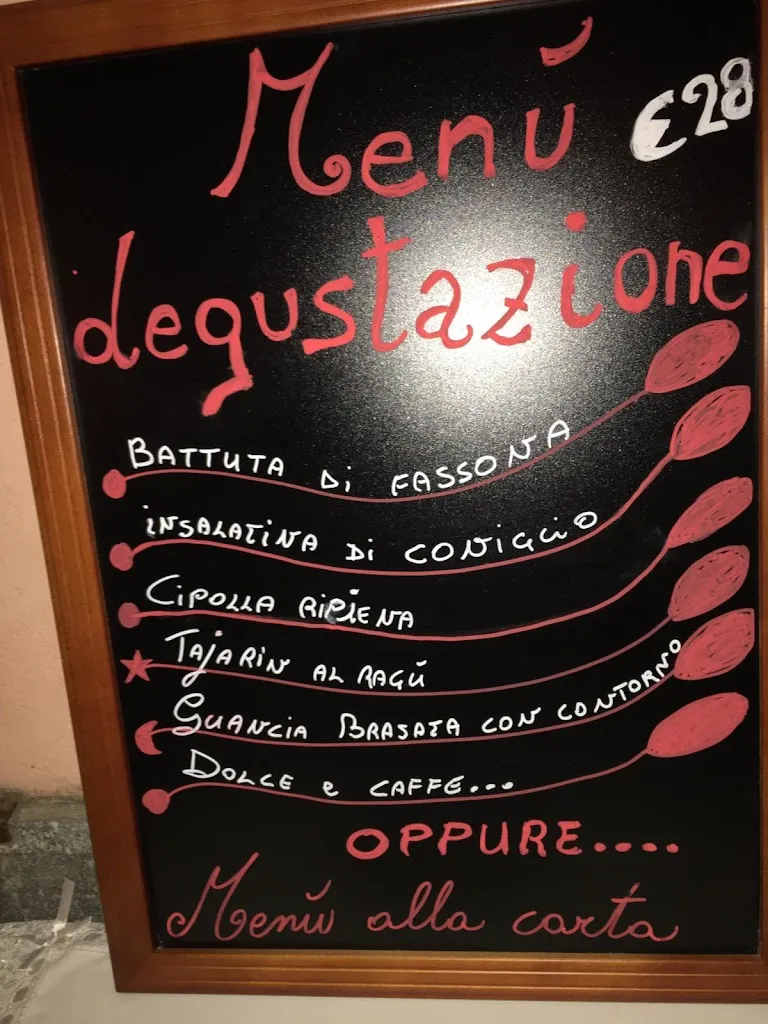 Menú
€28
degustazione
BATTUTA Di FASSONA
iNSALATiNA Di CONiGLiO
CiPOLLA RiPiENA
TAJARIN AL RAGÚ
GUANCIA BRASATA CON CONTORNO
DOLCE e CAFFE...
OPPURE....
Menú alla carta